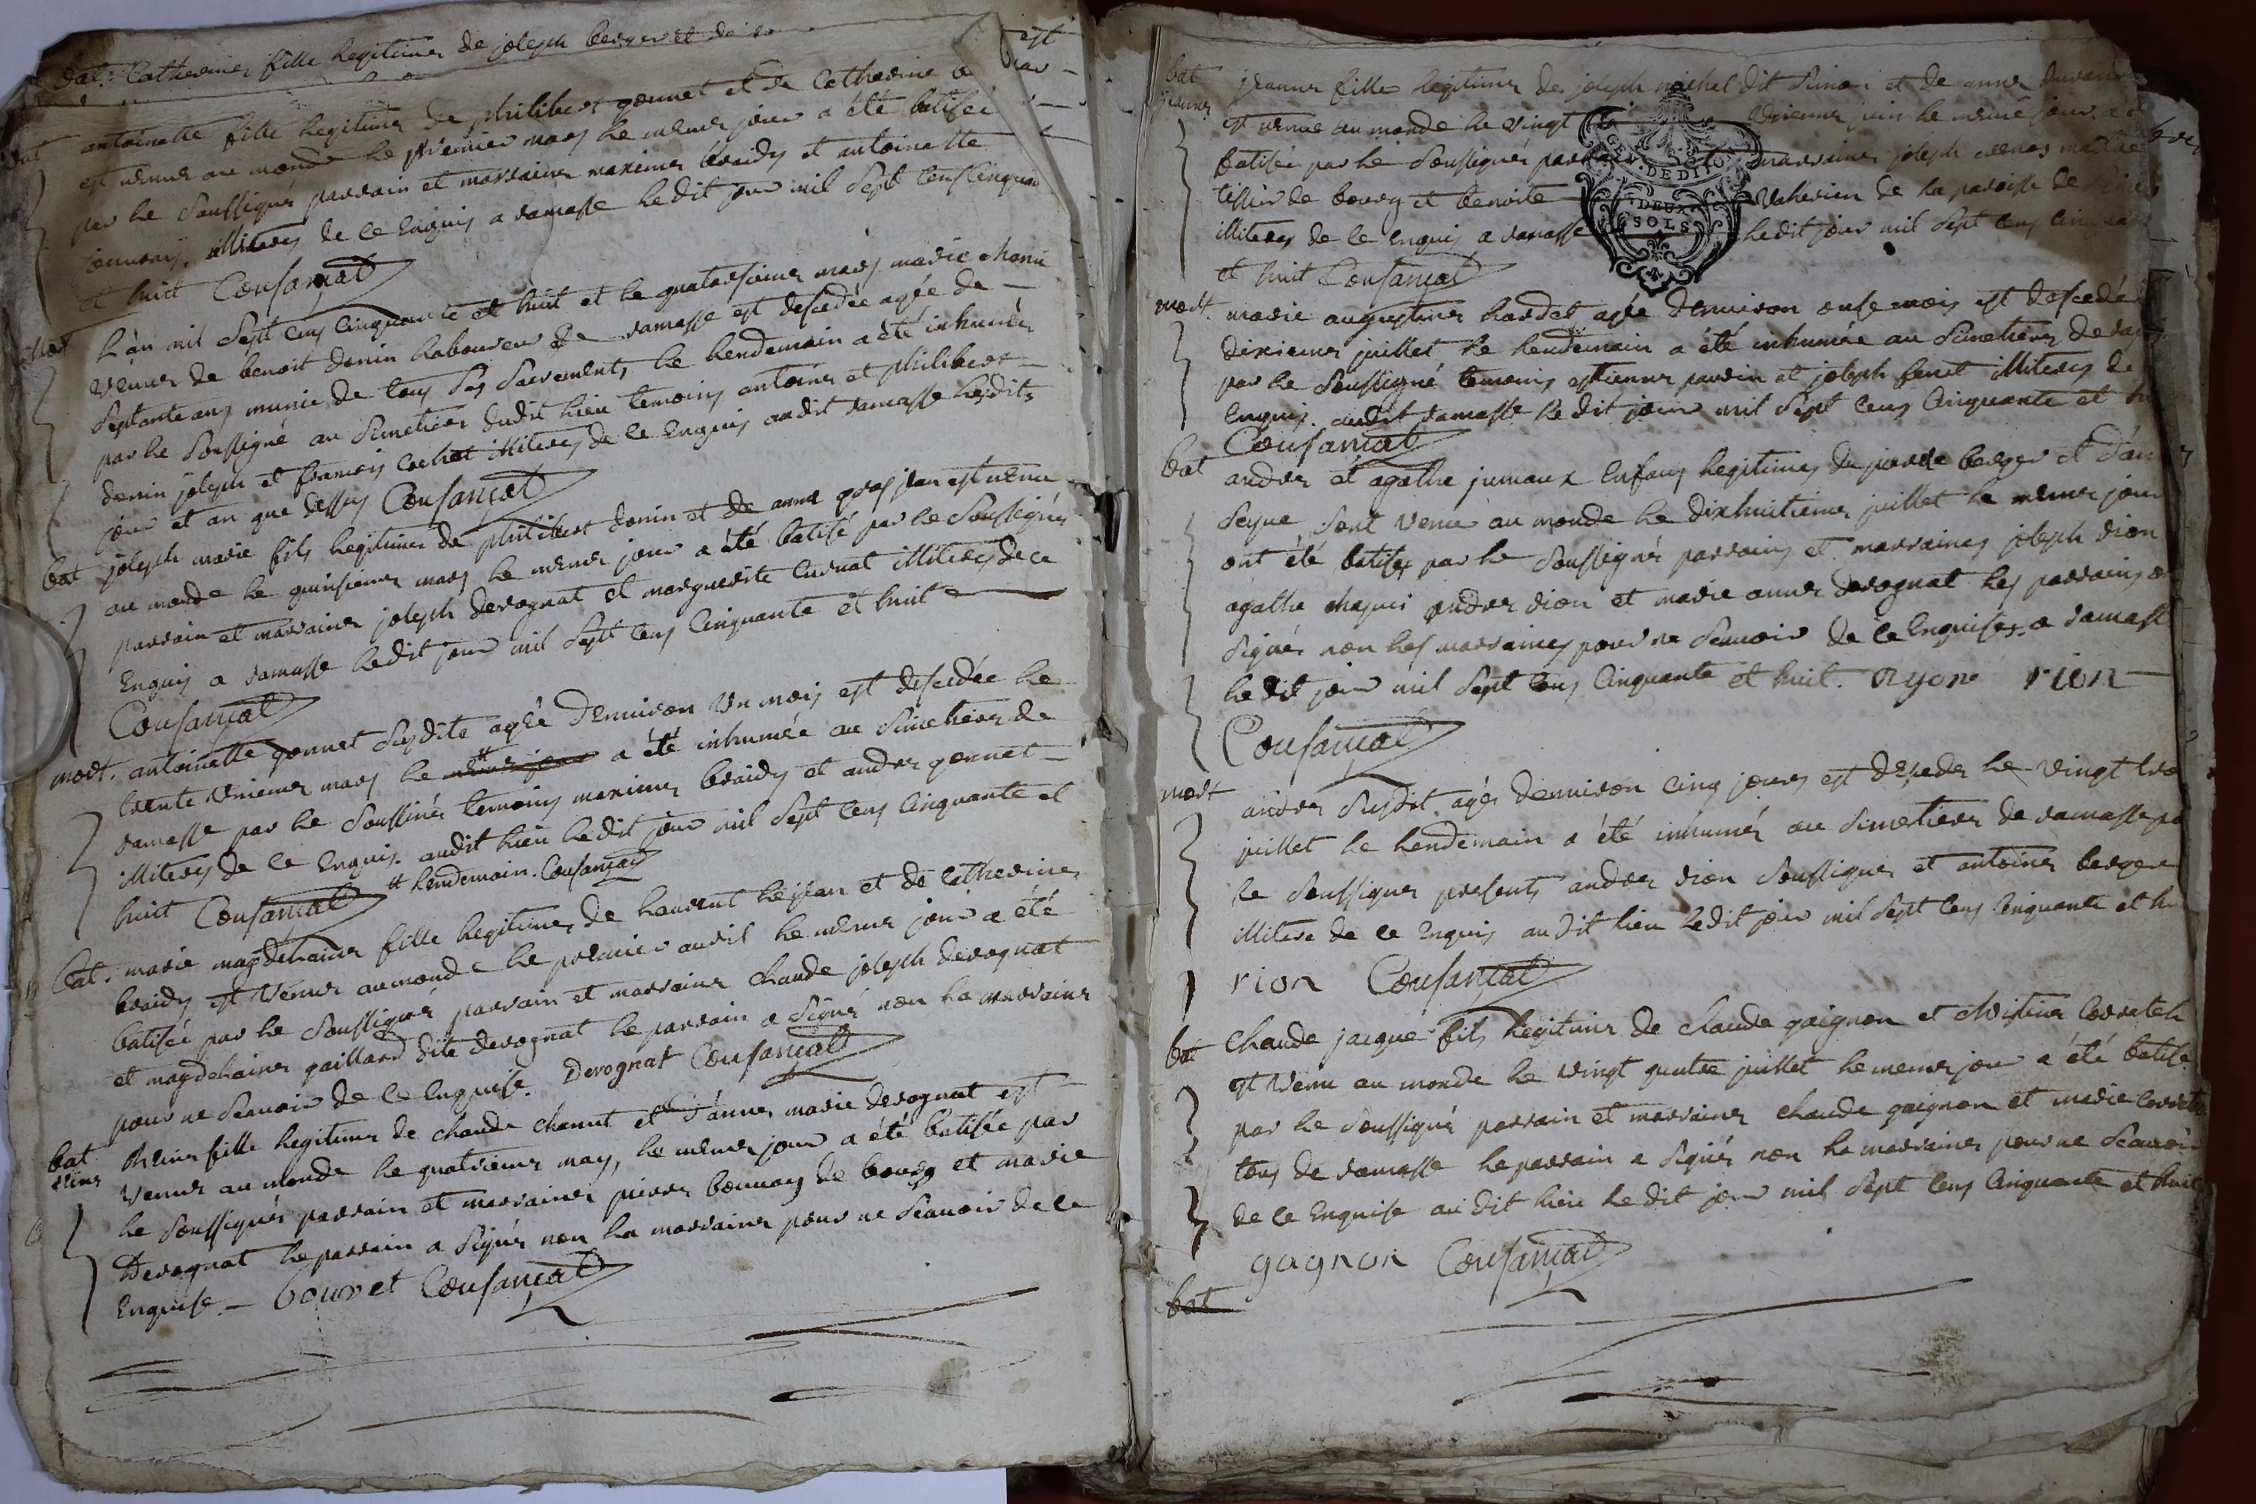 bat. Catherine fille legitime de joseph berger et de
bat antoinette fille legitime de philibert gonnet et de Catherine
est venue au monde le premier mars le meme jour a été batisée
par le soussigné parrain et marraine maxime braidy et antoinette
illiteres de ce enquis a ramasse ledit jour mil sept cens cinquante
et huit Cousançat
mort L'an mil sept cens cinquante et huit et le quatorsieme mars marie
veuve de benoit donin laboureur de ramasse est descedée agée de
septante ans munie de tous ses sacrements le lendemain a été inhumée
par le soussigné au simetiere dudit lieu temoins antoine et philibert
donin joseph et francois cochet illiteres de ce enquis audit ramasse lesdits
jour et an que dessus Cousançat
bat joseph marie fils legitime de philibert donin et de anne grosjean est venu
au monde le quinsieme mars le meme jour a été batisé par le soussigné
parrain et marraine joseph derognat et marguerite cursat illiteres de ce
enquis a ramasse ledit jour mil sept cens cinquante et huit
Cousançat
mort. antoinette gonnet susdite agée denviron un mois est descedée le
trente unieme mars le a été inhumée au simetiere de
ramasse par le soussiné temoins maxime braidy et andre gonnet
illiteres de ce enquis. audit lieu ledit jour mil sept cens cinquante et
huit Cousançat # lendemain. Cousançat
bat. marie magdelaine fille legitime de laurent lejean et de catherine
braidy est venue au monde le premier avril le meme jour a été
batisée par le soussigné parrain et marraine claude joseph derognat
et magdelaine gaillard dite derognat le parrain a signé non la marraine
pour ne scavoir de ce enquise. Derognat Cousançat
bat reine fille legitime de claude chanut et d'anne marie derognat est
reine venue au monde le quatrieme may, le meme jour a été batisée par
le soussigné parrain et marraine pierre bouvard de bourg et marie
Derognat le parrain a signé non la marraine pour ne scavoir de ce
enquise. bouvet Cousançat
bat jeanne fille legitime de joseph michel dit simon et de anne durand
jeanne est venue au monde le vingt unieme juin le meme jour a été
batisée par le soussigné parrain marraine joseph maitre
tissier de bourg et benoite de la paroisse de
illiteres de ce enquis a ramasse ledit jour mil sept cens cinquante
et huit Cousançat
GEN. DE DIJON
DEUX
SOLS
mort. marie augustine hardet agée denviron onse mois est descedée
dixieme juillet le lendemain a été inhumée au simetiere de
par le soussigné temoins estienne pauvin et joseph fenet illiteres de
enquis. audit ramasse ledit jour mil sept cens cinquante et
Cousançat
bat andre et agathe jumaux enfans legitimes de pierre berger et d'anne
seque sont venu au monde le dixhuitieme juillet le meme jour
ont été batisés par le soussigné parrains et marraines joseph rion
agathe chapuis andre rion et marie anne derognat les parrains ont
signés non les marraines pour ne scavoir de ce enquises. a ramasse
ledit jour mil sept cens cinquante et huit. Ryone rion
Cousançat
mort andre susdit agé denviron cinq jours est descedé le vingt trois
juillet le lendemain a été inhumé au simetiere de ramasse par
le soussigné presents andre rion soussigné et antoine berger
illitere de ce enquis au dit lieu ledit jour mil sept cens cinquante et
rion Cousançat
bat Claude jacque fils legitime de claude gaignon et christine
est venu au monde le vingt quatre juillet le meme jour a été batisé
par le soussigné parrain et marraine claude gaignon et marie
tous de ramasse le parrain a signé non la marraine pour ne scavoir
de ce enquise au dit lieu le dit jour mil sept cens cinquante et huit
gagnon Cousançat
bat